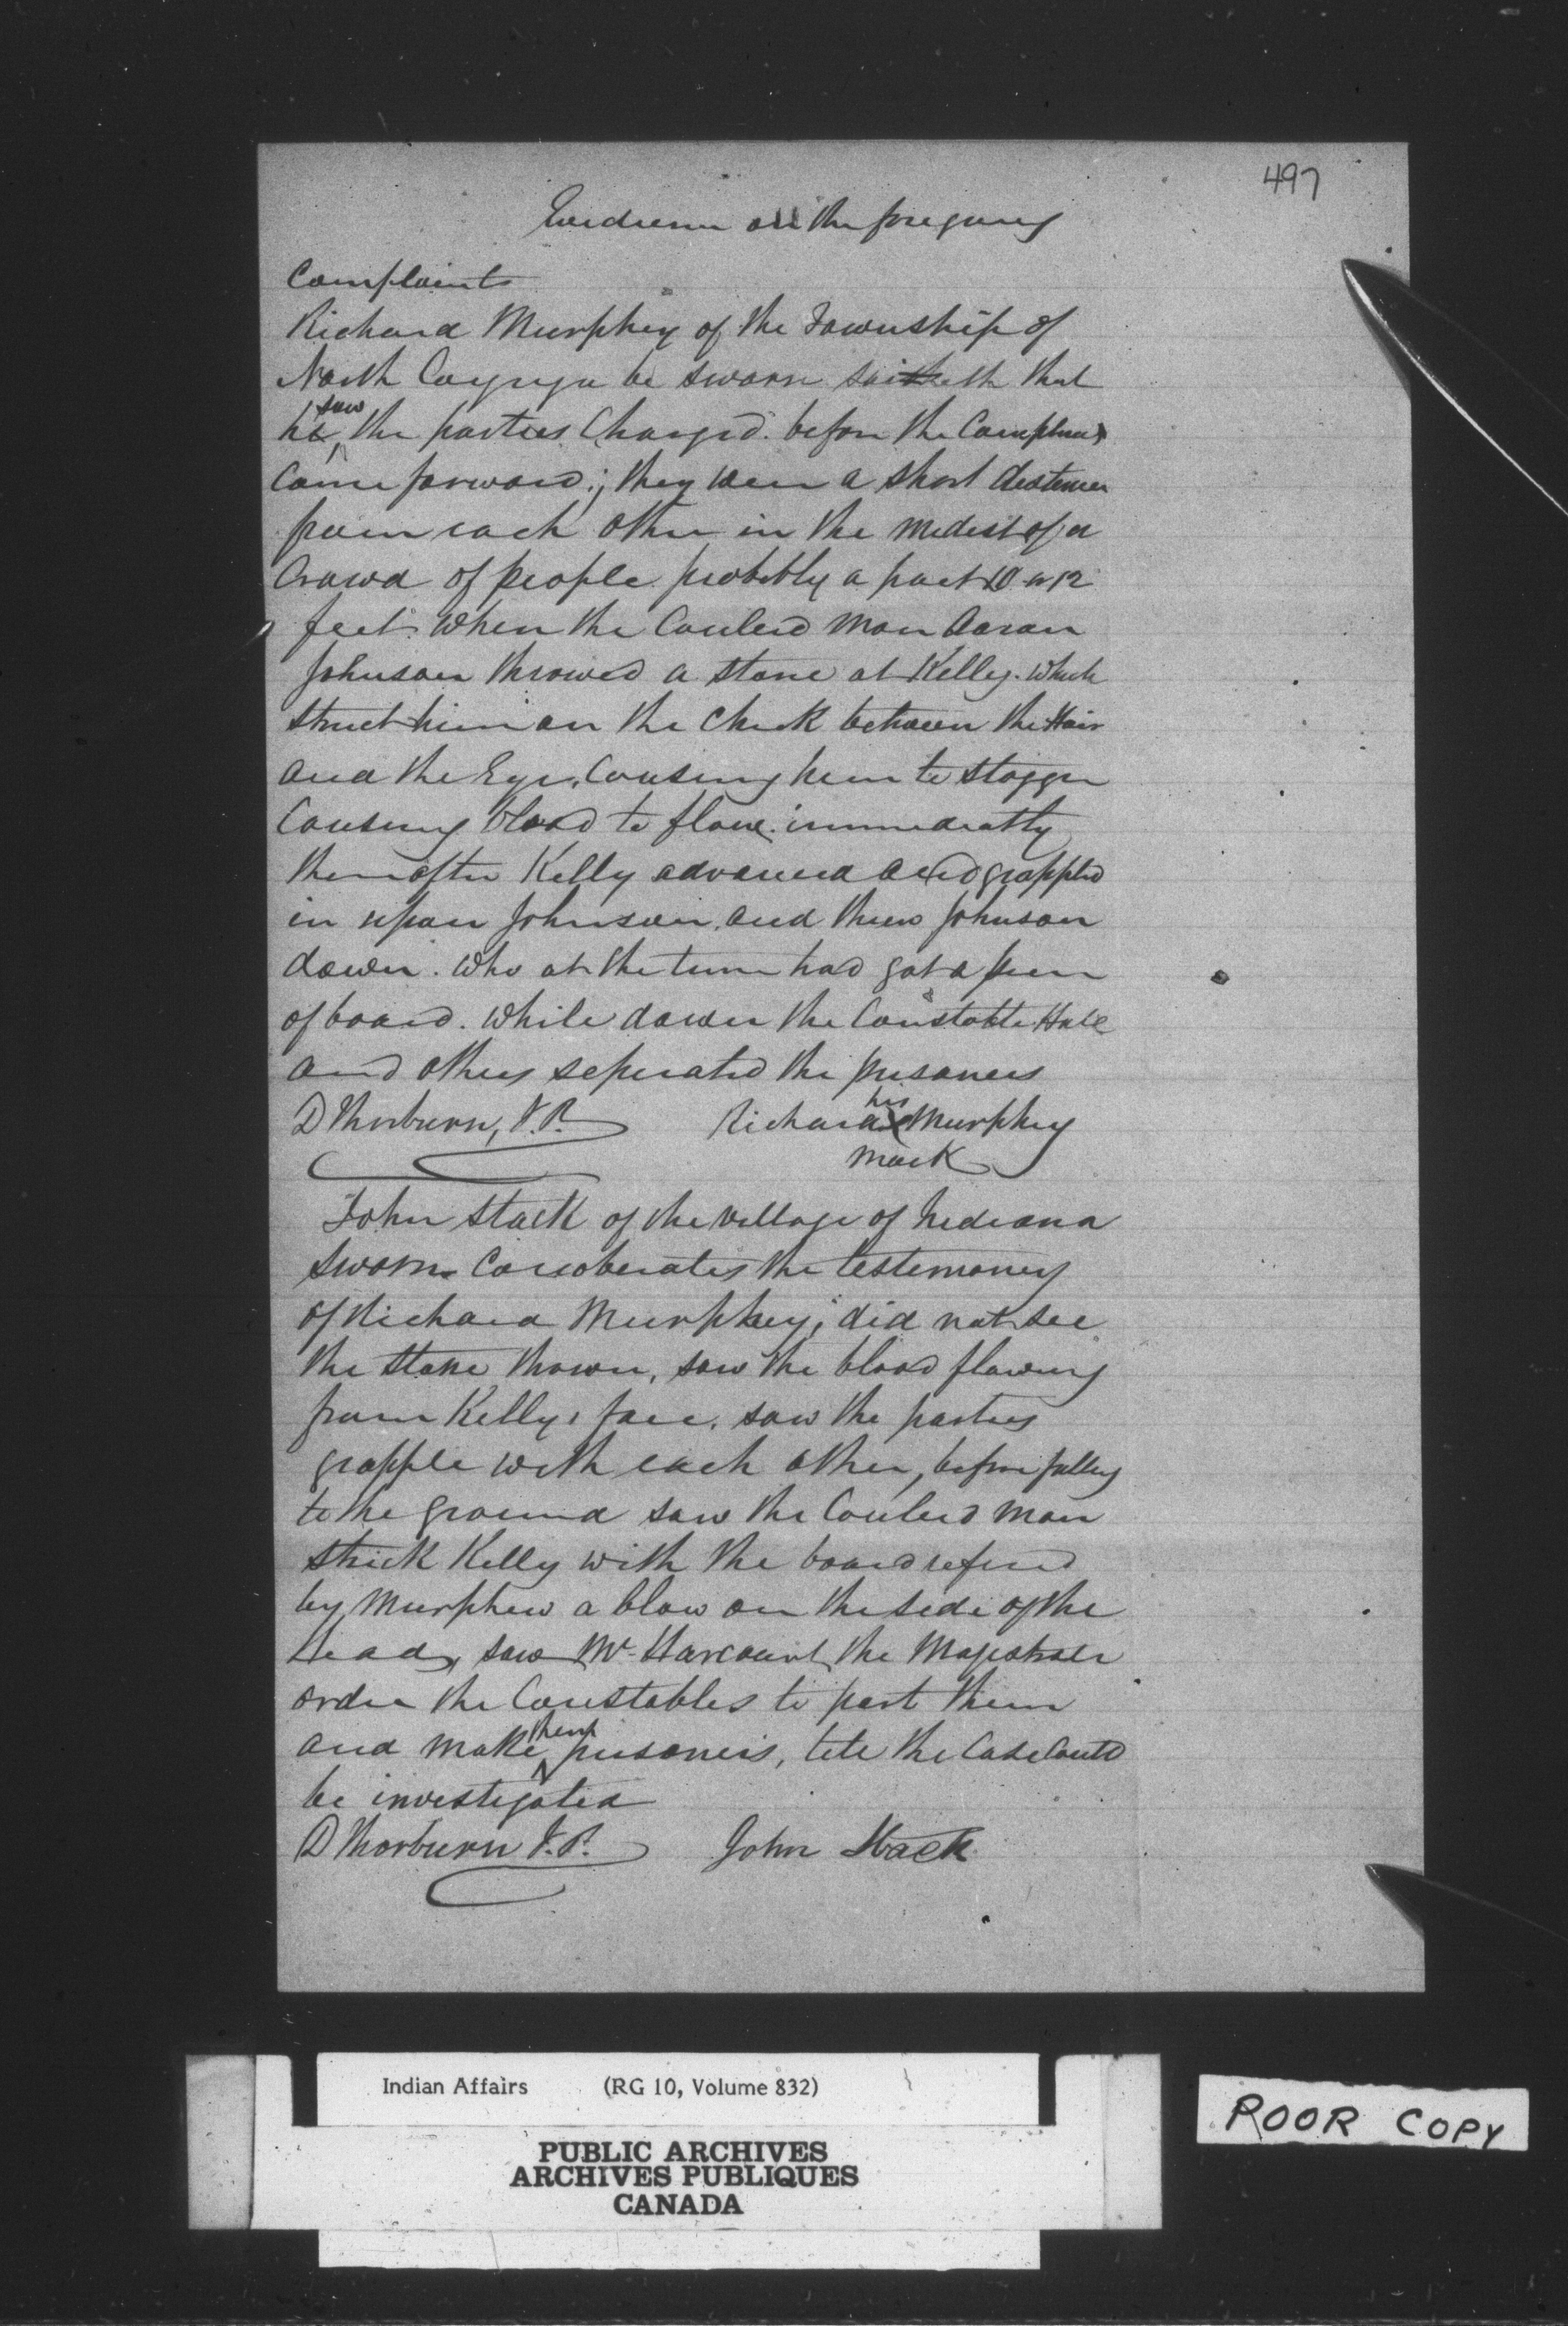 497
Evidence on the foregoing
Complaints
Richard Murphey of the Township of
North Cayuga be sworn saitheth that
he saw the parties Charged. before the
Came forward; they were a short distance
from each other in the midest of a
Crowd of people probobly a part 10 or 12
feet. When the Couler'd man Aaron
Johnson throwed a stone at Kelly. which
struct him on the Cheek between the Hair
and the Eye, Causing him to stagger
Causing blood to flow. immediatly
thereafter Kelly advanced and grappled
in upon Johnson, and threw Johnson
down. Who at the time had got a piece
of board. While down the Constable Hall
and others seperated the prisoners
D Thorburn, J.P. Richard his X Murphey
mark
John Stack of the village of Indiana
Sworn Corroberates the testemoney
of Richard Murphey; did not see
the stone thrown, saw the blood flowing
from Kelly's face. saw the parties
grapple with each other, before falling
to the ground saw the Couler'd man
strick Kelly with the board refered
by Murphew a blow on the side of the
head, saw Mr Harcourt, the Magestrate
order the Constables to part them
and make them prisoners, till the Case Could
be investigated
D Thorburn J.P. John Stack
Indian Affairs (RG 10, Volume 832)
PUBLIC ARCHIVES
ARCHIVES PUBLIQUES
CANADA
POOR COPY